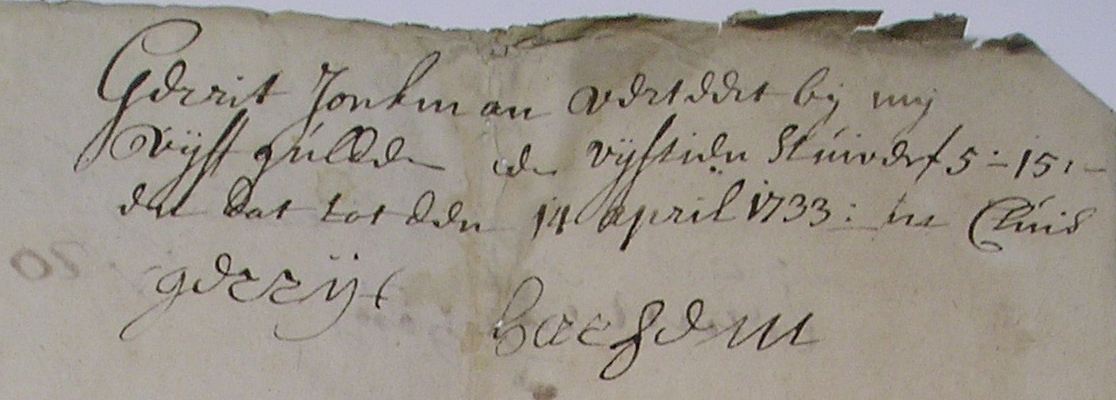 Gerrit Jonkman verteert bij mij
Vijff gulden en vijftien Stuivers f 5 - 15 : -
en dat tot den 14 april 1733 : in Cluis
gerryt